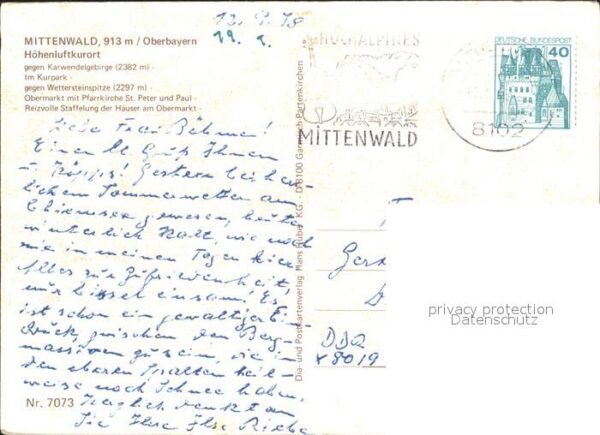 12.9.78
19.
MITTENWALD, 913 m / Oberbayern
Höhenluftkurort
gegen Karwendelgebirge (2382 m) -
Im Kurpark -
gegen Wettersteinspitze (2297 m) -
Obermarkt mit Pfarrkirche St. Peter und Paul -
Reizvolle Staffelung der Häuser am Obermarkt -
Liebe Frau Böhme!
Einen Gruß Ihnen
u. Gestern bei herr-
lichem Sommerwetter am
Chiemsee gewesen, heute
winterlich kalt, wie noch
nie in meinen Tagen hier
Alles zur Zufriedenheit,
nur bissel einsam! Es
ist schon ein gewaltiger Ein-
druck, zwischen den Berg-
massiven zu sein, die in
den oberen Spalten teil-
weise noch Schnee haben.
Herzlich denkt an
Sie Ihre Ilse
Nr. 7073
Dia- und Postkartenverlag Hans Huber KG. - D 8100 Garmisch-Partenkirchen
HOCHALPINES
MITTENWALD
8102
DEUTSCHE BUNDESPOST
40
DDR
8019
privacy protection
Datenschutz